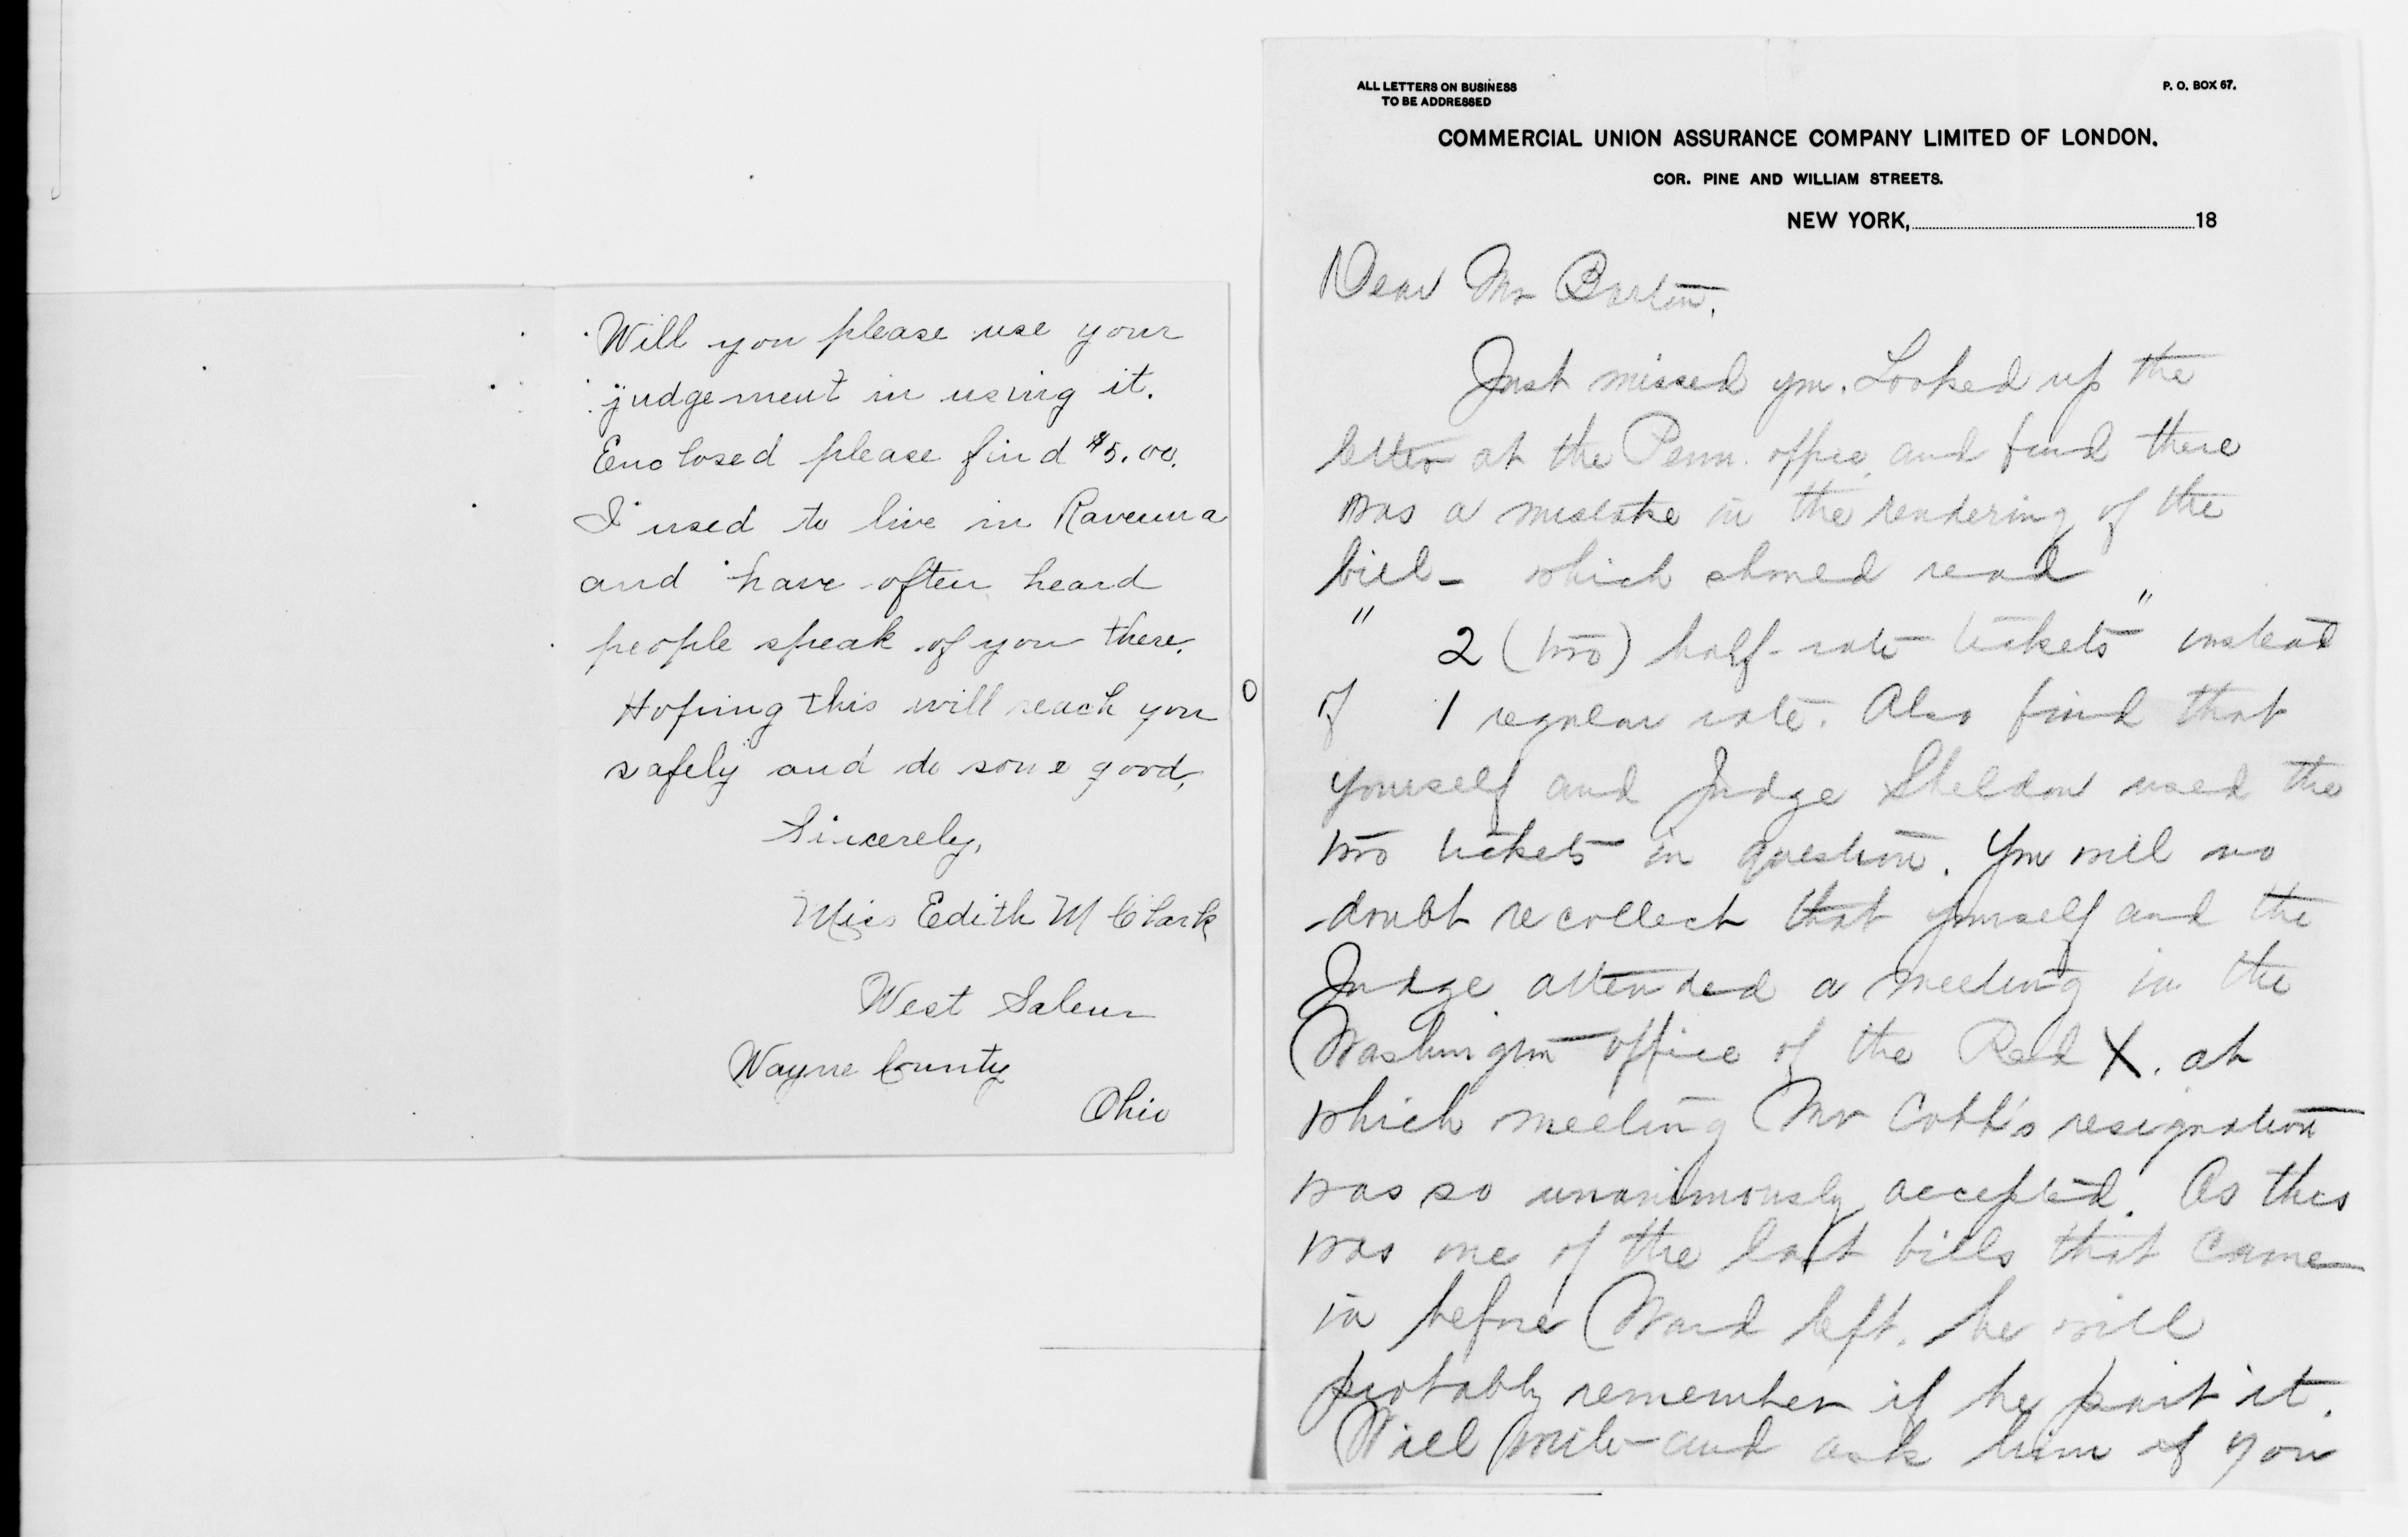 Will you please use your
judgement in using it.
Enclosed please find $5.00.
I used to live in Ravenna
and have often heard
people speak of you there.
Hoping this will reach you
safely and do some good,
Sincerely,
Miss Edith M Clark
West Salem
Wayne County
Ohio
ALL LETTERS ON BUSINESS
TO BE ADDRESSED
P. O. BOX 67.
COMMERCIAL UNION ASSURANCE COMPANY LIMITED OF LONDON.
COR. PINE AND WILLIAM STREETS.
NEW YORK, 18
Dear Mr Barton.
Just missed you. Looked up the
letter at the Penn. office and find there
was a mistake in the rendering of the
bill - which should read
" 2 (two) half-rate tickets" instead
of 1 regular rate. Also find that
yourself and Judge Sheldon used the
two tickets in question. You will no
doubt recollect that yourself and the
Judge attended a meeting in the
Washington office of the Red X. at
which meeting Mr Cobb's resignation
was so unanimously accepted. As this
was one of the last bills that came
in before Ward left. he will
probably remember if he paid it.
Will write and ask him if you